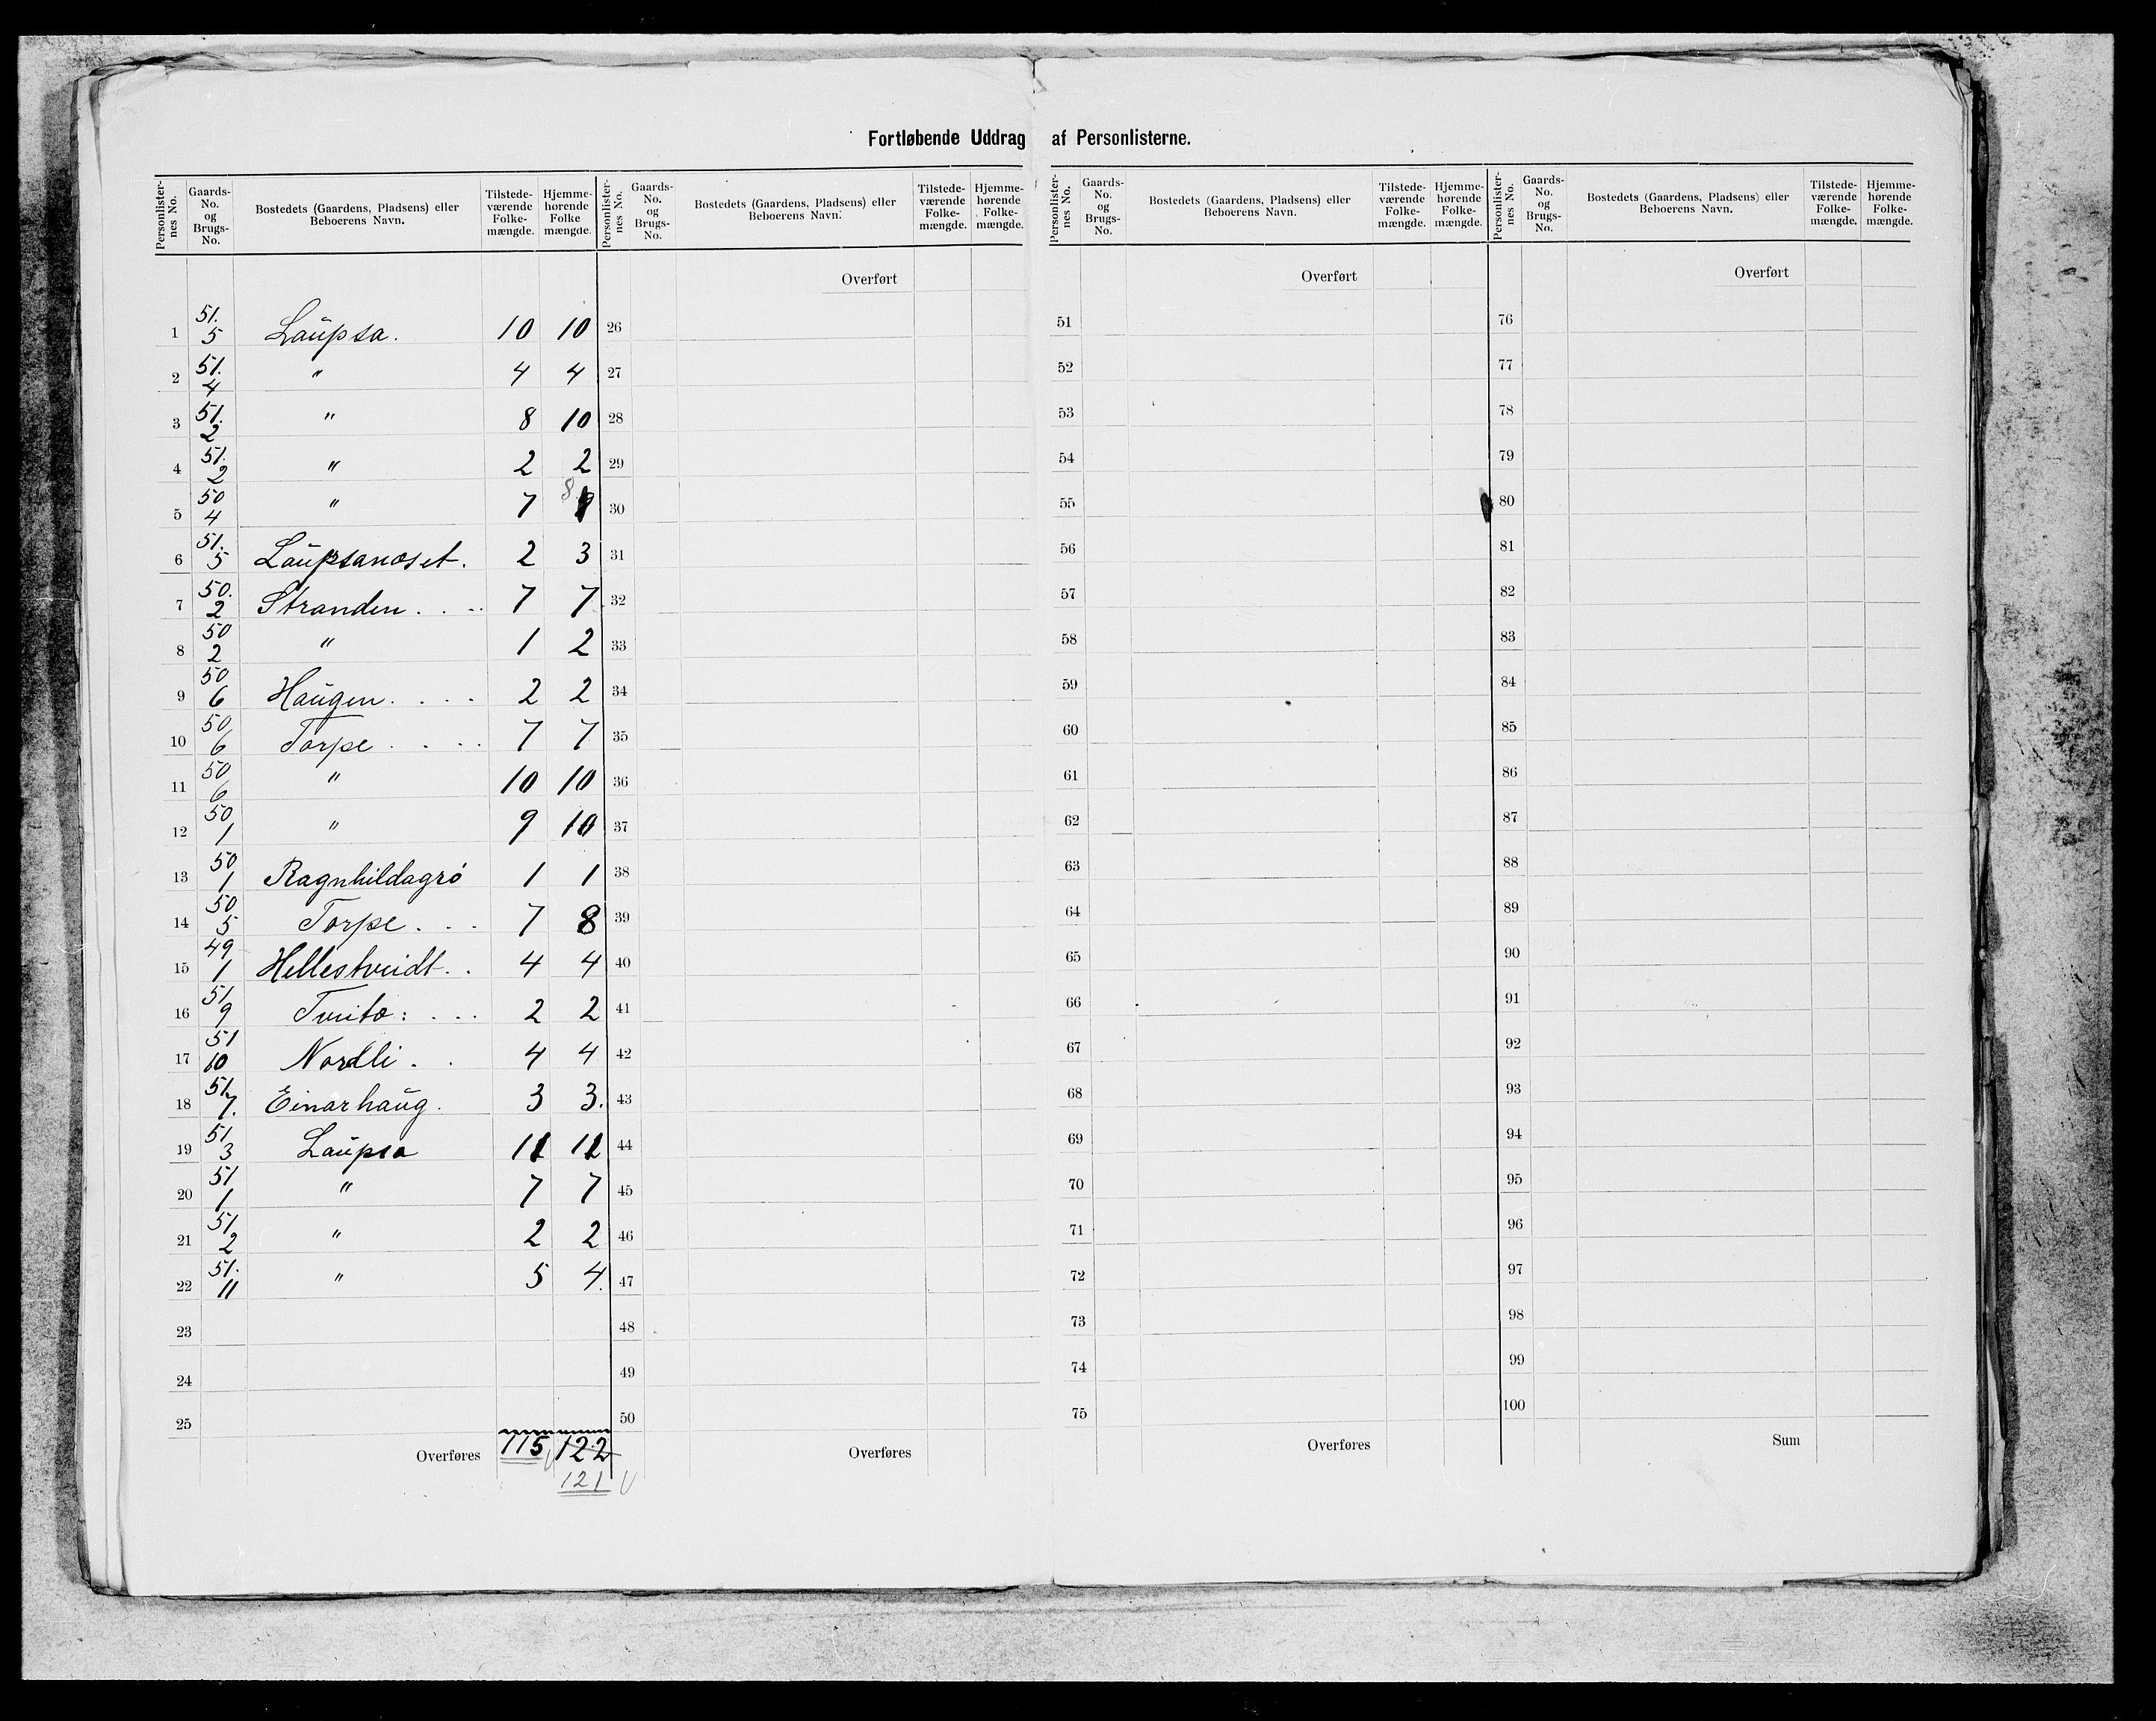 Fortløbende Uddrag af Personlisterne.
Personlister-nes No. | Gaards-No. og Brugs-No. | Bostedets (Gaardens, Pladsens) eller Beboerens Navn. | Tilstede-værende Folke-mængde. | Hjemme-hørende Folke mængde. | Personlister-nes No. | Gaards-No. og Brugs-No. | Bostedets (Gaardens, Pladsens) eller Beboerens Navn. | Tilstede-værende Folke-mængde. | Hjemme-hørende Folke-mængde. | Personlister-nes No. | Gaards-No. og Brugs-No. | Bostedets (Gaardens, Pladsens) eller Beboerens Navn. | Tilstede-værende Folke-mængde. | Hjemme-hørende Folke-mængde. | Personlister-nes No. | Gaards-No. og Brugs-No. | Bostedets (Gaardens, Pladsens) eller Beboerens Navn. | Tilstede-værende Folke-mængde. | Hjemme-hørende Folke-mængde.
Overført Overført Overført
1 51. 5 Laupsa. 10 10 26 51 76
2 51. 4 " 4 4 27 52 77
3 51. 2 " 8 10 28 53 78
4 51. 2 " 2 2 29 54 79
5 50 4 " 7 8 30 55 80
6 51. 5 Laupsanoset. 2 3 31 56 81
7 50. 2 Stranden . . . 7 7 32 57 82
8 50 2 " 1 2 33 58 83
9 50 6 Haugen. . . . 2 2 34 59 84
10 50 6 Torpe . . . . 7 7 35 60 85
11 50 6 " 10 10 36 61 86
12 50 1 " 9 10 37 62 87
13 50 1 Ragnhildagrø 1 1 38 63 88
14 50 5 Torpe . . . 7 8 39 64 89
15 49 1 Hellestveidt. . 4 4 40 65 90
16 51 9 Tveito : . . . 2 2 41 66 91
17 51 10 Nordli . . 4 4 42 67 92
18 51 7. Einarhaug. 3 3. 43 68 93
19 51 3 Laupsa 11 11 44 69 94
20 51 1 " 7 7 45 70 95
21 51 2 " 2 2 46 71 96
22 51. 11 " 5 4. 47 72 97
23 48 73 98
24 49 74 99
25 50 75 100
Overføres 115 122 Overføres Overføres Sum
121